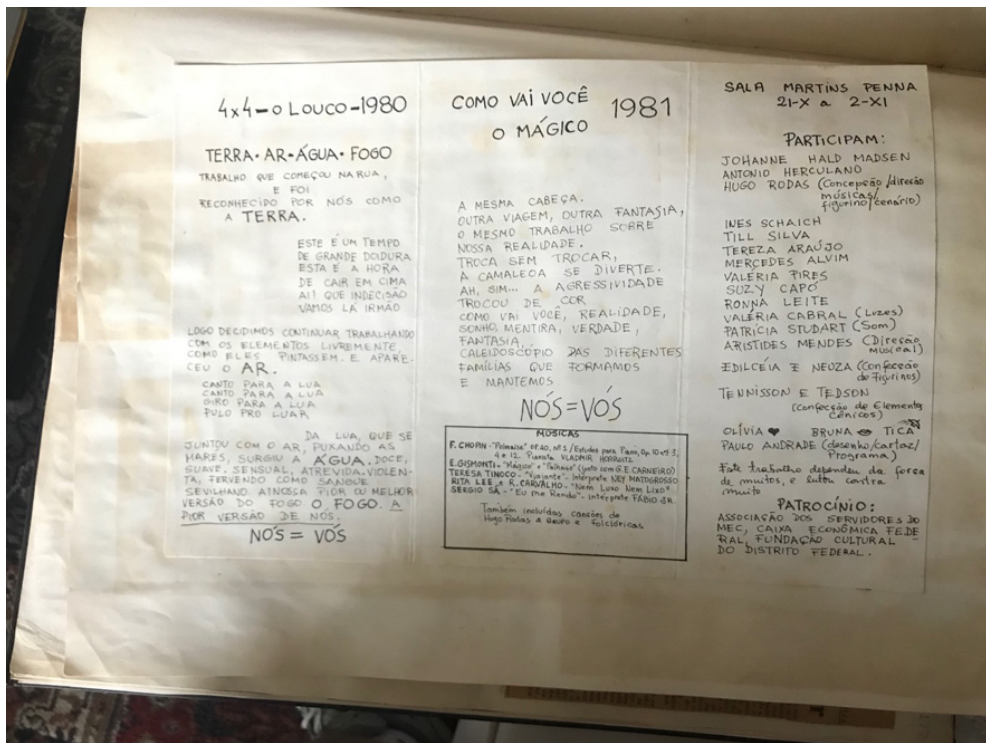 4x4-O LOUCO-1980
TERRA·AR·ÁGUA·FOGO
TRABALHO QUE COMEÇOU NA RUA,
E FOI
RECONHECIDO POR NÓS COMO
A TERRA.
ESTE É UM TEMPO
DE GRANDE DOIDURA
ESTA É A HORA
DE CAIR EM CIMA
AI! QUE INDECISÃO
VAMOS LÁ IRMÃO
LOGO DECIDIMOS CONTINUAR TRABALHANDO
COM OS ELEMENTOS LIVREMENTE,
COMO ELES PINTASSEM. E APARE-
CEU O AR.
CANTO PARA A LUA
CANTO PARA A LUA
GIRO PARA A LUA
PULO PRO LUAR
DA LUA, QUE SE
JUNTOU COM O AR, PUXANDO AS
MARES, SURGIU A ÁGUA. DOCE,
SUAVE. SENSUAL, ATREVIDA. VIOLEN-
TA, FERVENDO COMO SANGUE
SEVILHANO A NOSSA PIOR OU MELHOR
VERSÃO DO FOGO O FOGO. A
PIOR VERSÃO DE NÓS.
NÓS = VÓS
COMO VAI VOCÊ 1981
O MÁGICO
A MESMA CABEÇA.
OUTRA VIAGEM, OUTRA FANTASIA,
O MESMO TRABALHO SOBRE
NOSSA REALIDADE.
TROCA SEM TROCAR,
A CAMALEOA SE DIVERTE.
AH, SIM... A AGRESSIVIDADE
TROCOU DE COR
COMO VAI VOCÊ, REALIDADE,
SONHO, MENTIRA, VERDADE,
FANTASIA,
CALEIDOSCÓPIO DAS DIFERENTES
FAMÍLIAS QUE FORMAMOS
E MANTEMOS
NÓS=VÓS
MÚSICAS
F. CHOPIN-"Polonaise" OP.40, nº1/Estudos para Piano, Op. 10 nº 3,
4 e 12. Pianista VLADMIR HOROWITZ
E.GISMONTI-"Mágico" e "Palhaço" (junto com G.E. CARNEIRO)
TERESA TINOCO-"Viajante"- Intérprete NEY MATOGROSSO
RITA LEE e R. CARVALHO-"Nem Luxo Nem Lixo"
SERGIO SÁ-"Eu me Rendo". intérprete FÁBIO JR.
Também incluídas canções de
Hugo Rodas e Grupo e folclóricas
SALA MARTINS PENNA
21-X a 2-XI
PARTICIPAM:
JOHANNE HALD MADSEN
ANTONIO HERCULANO
HUGO RODAS (Concepção/direção
músicas/
figurino/cenário)
INES SCHAICH
TILL SILVA
TEREZA ARAÚJO
MERCEDES ALVIM
VALÉRIA PIRES
SUZY CAPÓ
RONNA LEITE
VALÉRIA CABRAL (Luzes)
PATRÍCIA STUDART (Som)
ARISTIDES MENDES (Direção
musical)
EDILCÉIA E NEUZA (Confecção
de Figurinos)
TENNISSON E TEDSON
(confecção de Elementos
Cênicos)
OLÍVIA BRUNA TICA
PAULO ANDRADE (desenho/cartaz/
Programa)
Este trabalho dependeu da força
de muitos, e lutou contra
muito
PATROCÍNIO:
ASSOCIAÇÃO DOS SERVIDORES DO
MEC, CAIXA ECONÔMICA FEDE
RAL, FUNDAÇÃO CULTURAL
DO DISTRITO FEDERAL.